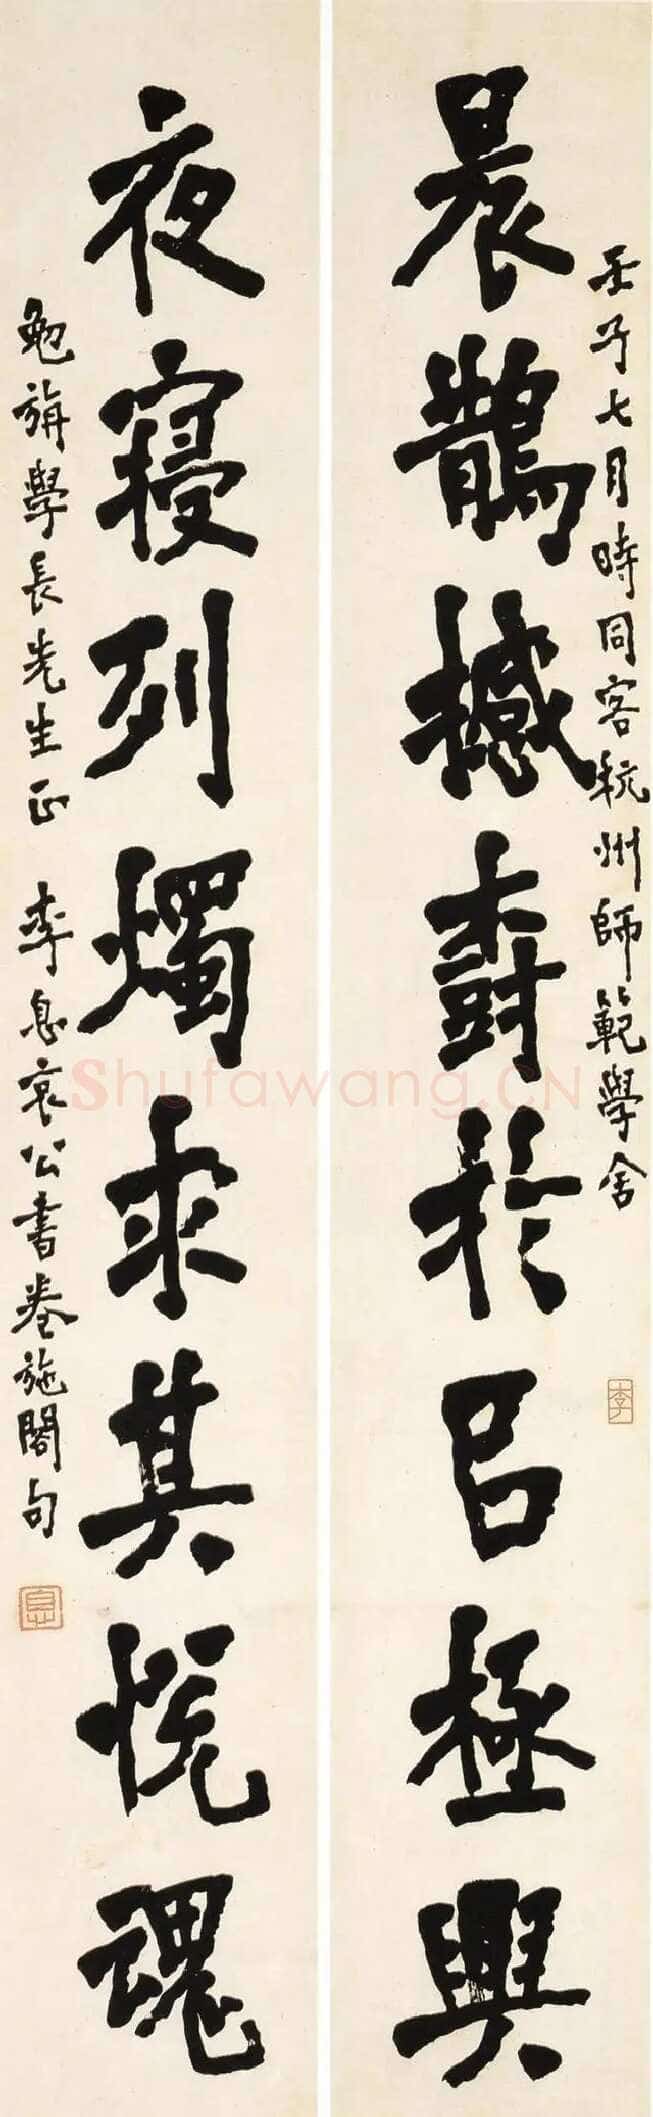 壬子七月時同客杭州師範學舍
李
晨鵲撼樹於㠯極興
夜寢列燭求其悅魂
勉旃學長先生正 李息哀公書卷施閣句
息
Shufawang.CN